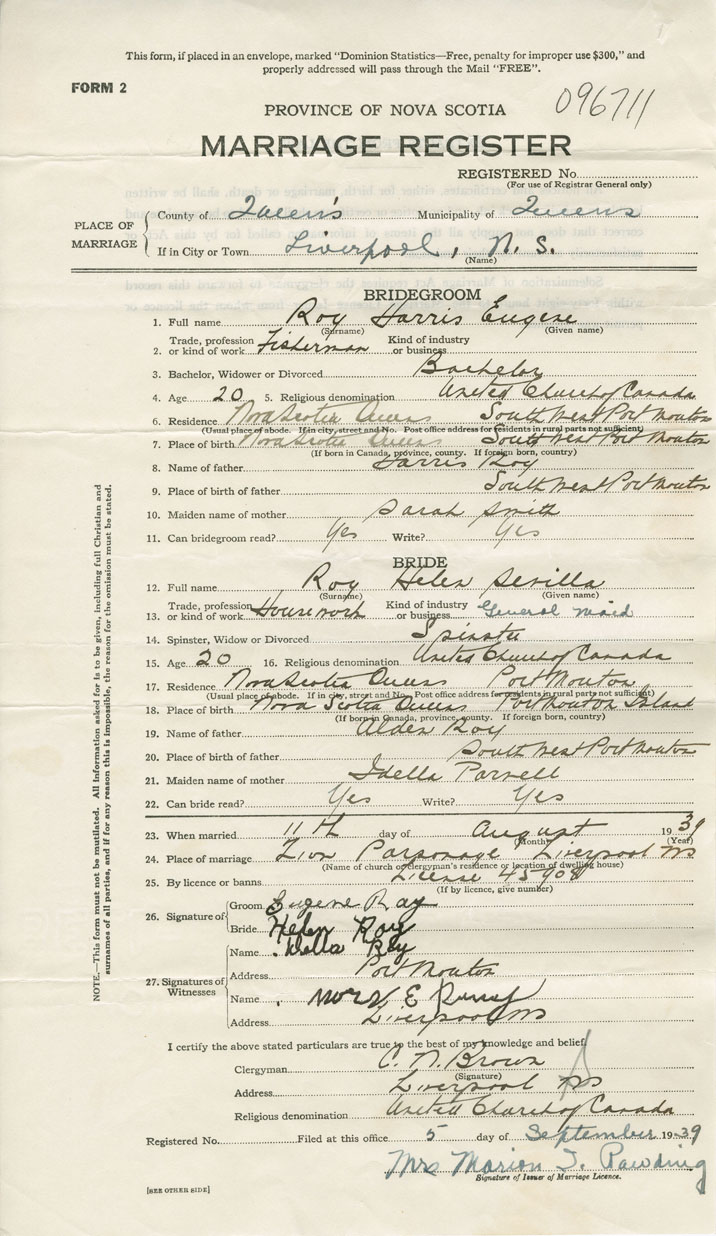 This form, if placed in an envelope, marked "Dominion Statistics—Free, penalty for improper use $300," and
properly addressed will pass through the Mail "FREE".
FORM 2
096711
PROVINCE OF NOVA SCOTIA
MARRIAGE REGISTER
REGISTERED No.
(For use of Registrar General only)
PLACE OF MARRIAGE
County of Queen's Municipality of Queens
If in City or Town Liverpool, N. S.
(Name)
BRIDEGROOM
1. Full name Roy Harris Eugene
(Surname) (Given name)
2. Trade, profession or kind of work Fisherman Kind of industry or business
3. Bachelor, Widower or Divorced Bachelor
4. Age 20 5. Religious denomination United Church of Canada
6. Residence Nova Scotia Queens South West Port Mouton
(Usual place of abode. If in city, street and No. Post office address for residents in rural parts not sufficient)
7. Place of birth Nova Scotia Queens South West Port Mouton
(If born in Canada, province, county. If foreign born, country)
8. Name of father Harris Roy
9. Place of birth of father South West Port Mouton
10. Maiden name of mother Sarah Smith
11. Can bridegroom read? Yes Write? Yes
BRIDE
12. Full name Roy Helen Sevilla
(Surname) (Given name)
13. Trade, profession or kind of work Housework Kind of industry or business General maid
14. Spinster, Widow or Divorced Spinster
15. Age 20 16. Religious denomination United Church of Canada
17. Residence Nova Scotia Queens Port Mouton
(Usual place of abode. If in city, street and No. Post office address for residents in rural parts not sufficient)
18. Place of birth Nova Scotia Queens Port Mouton Island
(If born in Canada, province, county. If foreign born, country)
19. Name of father Alden Roy
20. Place of birth of father South West Port Mouton
21. Maiden name of mother Idella Parnell
22. Can bride read? Yes Write? Yes
23. When married 11th day of August 1939
(Month) (Year)
24. Place of marriage Zion Parsonage Liverpool NS
(Name of church or clergyman's residence or location of dwelling house)
25. By licence or banns License 45908
(If by licence, give number)
26. Signature of
Groom Eugene Roy
Bride Helen Roy
27. Signatures of Witnesses
Name Della Roy
Address Port Mouton
Name Mrs E
Address Liverpool NS
I certify the above stated particulars are true to the best of my knowledge and belief.
Clergyman C. N. Brown
(Signature)
Address Liverpool NS
Religious denomination United Church of Canada
Registered No. Filed at this office 5 day of September 1939
Mrs Marion T. Pawding
Signature of Issuer of Marriage Licence.
[SEE OTHER SIDE]
NOTE.—This form must not be mutilated. All Information asked for is to be given, including full Christian and
surnames of all parties, and if for any reason this is impossible, the reason for the omission must be stated.